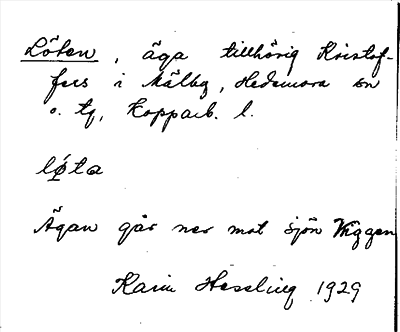 Löten, äga tillhörig Kristof-
fers i Mälby, Hedemora sn
o. tg, Kopparb. l.
lø̠ta
Ägan går ner mot sjön Viggen
Karin Hesseling 1929